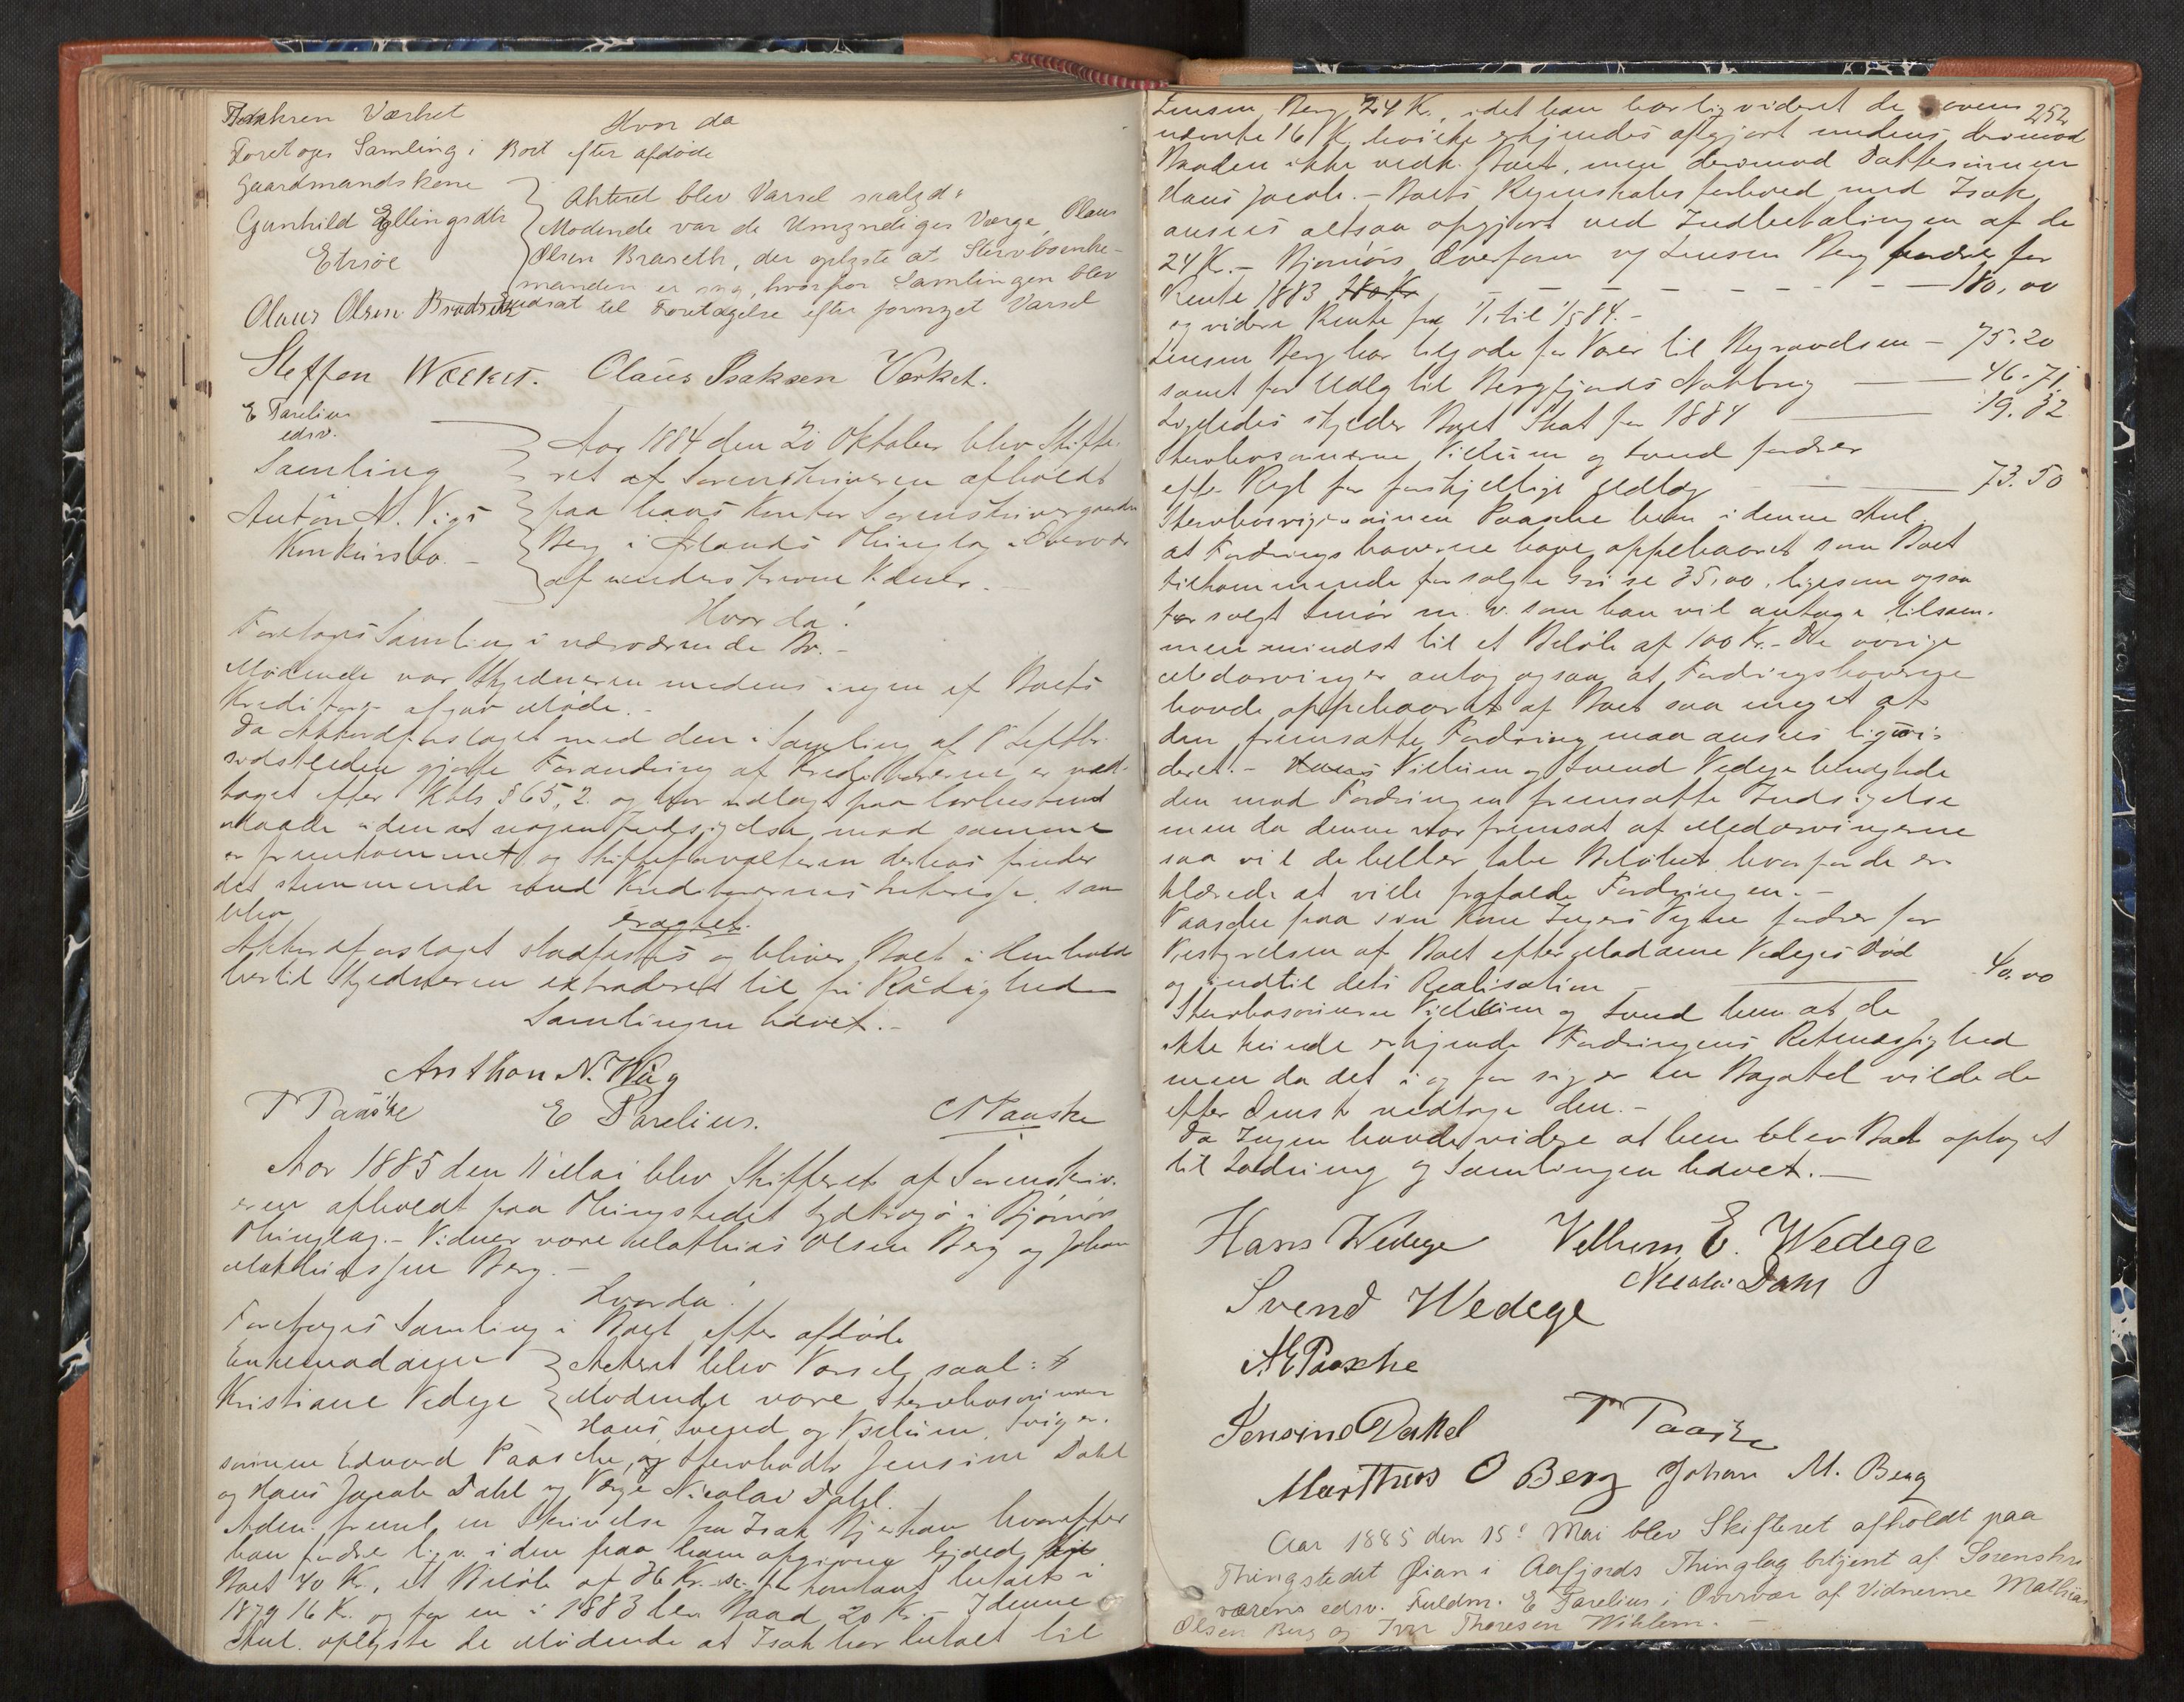 Isaksen Værket
Hvor da
Foretoges Samling i Boet efter afdøde
Gaardmandskone
Gunhild Ellingsdtr
Etnsøe
Akteret blev Varsel saalyd:
Mødende var de Umyndiges Værge, Olaus
Olsen Braseth, der oplyste at Stervboenke-
manden er syg, hvorfor Samlingen blev
udsat til Foretagelse efter fornyet Varsel
Olaus Olsen
Steffen Værket. Claus Isaksen Verket.
E Parelius
edsv.
Samling
Anton N. Vigs
Konkursbo.
Aar 1884 den 20 Oktober blev Skifte-
ret af Sorenskriveren afholdt
paa hans Kontor Sorenskrivergaarden
Berg i Ørlands Thinglag i Overvær
af underskrevne Vidner.
Hvor da!
Foretoges Samling i nærværende Bo.-
Mødende var Skyldneren medens ingen af Boets
Kreditorer afgav Møde.-
Da Akkordforslaget med den i Samling af 8 Septbr.
sidstleden gjorte Forandring af Kreditorerne er ved-
taget efter Kkls § 65,2. og har udlagt paa lovbestemt
Maade uden at nogen Indsigelse mod samme
er fremkommet og Skifteforvalteren derhos finder
det stemmende med Kreditorernes Interesse, saa
blev
eragtet.
Akkordforslaget stadfæstes og bliver Boet i Henhold
hertil Skyldneren extraderet til fri Raadighed
Samlingen hævet.-
Anthon N. Wiig
T Paaske E Parelius. Paaske
Aar 1885 den 11 Mai blev Skifteret af Sorenskriv-
eren afholdt paa Thingstedet Sydkrogø i Bjørnørs
Thinglag.- Vidner vare Mathias Olsen Berg og Johan
Mathiassen Berg.-
Hvorda!
Foretoges Samling i Boet efter afdøde
Enkemadame
Kristiane Vedege
Akteret blev Varsel saal:
Mødende vare Stervbosønnerne
Hans, Svend og Vilhelm, Sviger-
sønnen Edvard Paasche, og Stervbodtr Jensine Dahl
og Hans Jacob Dahl og Værge Nicolai Dahl.
Adm. freml. en Skrivelse fra Isak hvorefter
han fordrer liqv. i den paa ham opgivne Gjæld til
Boet 40 Kr., et Beløb af 36 Kr. kontant betalt i
1879 16 Kr. og for en i 1883 lev. Baad 20 Kr.- I denne
Anl. oplyste de Mødende at Isak har betalt til
252
Jensen Berg 24 Kr., idet han har liqvideret de ovennævnte
16 K, hvilke erkjendes afgjort medens derimod
Baaden ikke vedk. Boet, men derimod Dattersønnen
Hans Jacob.- Boets Regnskabsforhold med Isak
ansees altsaa opgjort ved Indbetalingen af de
24 Kr.- Bjørnørs Overform v/ Jensen Berg fordrer for
Rente 1883 180 Kr - - - - - - - - - 180,00
og videre Rente fra 1/1 til 1/5 84.-
Jensen Berg har tilgode for Varer til Begravelsen - 75.20
samt for Udlæg til Bergfjords Notbrug — 46.71
Ligeledes skylder Boet Skat for 1884 — 19.32
Stervbosønnerne Vilhelm og Svend fordrer
efter Regl for forskjellige Udlæg — 73.50
Stervbosvigersønnen Paasche bem. i denne Anl.
at Fordringshaverne have oppebaaret som Boet
tilkommende for solgte Grise 35,00, ligesom ogsaa
for solgt Smør m. v. som han vil antage tilsam-
men mindst til et Beløb af 100 Kr.- De øvrige
Medarvinger antog ogsaa at Fordringshaverne
havde oppebaaret af Boet saa meget at
den fremsatte Fordring maa ansees liqvi-
deret.- Vilhelm og Svend Vedege benægtede
den mod Fordringen fremsatte Indsigelse
men da denne var fremsat af Medarvingerne
saa vil de heller tabe Beløbet hvorfor de er-
klærede at ville frafalde Fordringen.-
Paasche paa sin Kone Ingers Vegne fordrer for
Bestyrelsen af Boet efter Madame Vedeges Død
og indtil dets Realisation — 40.00
Stervbosønnerne Vilhelm og Svend bem. at de
ikke kunde erkjende Fordringens Retmæssighed
men da det i og for sig er en Bagatel vilde de
efter Omst. vedtage den.-
Da Ingen havde videre at bem. blev Boet optaget
til Slutning og Samlingen hævet.—
Hans Wedege Velhem E. Wedege
Svend Wedege Nicolai Dahl
A E Paasche
Jensine Dahl T Paaske
Matthias O Berg Johan M. Berg
Aar 1885 den 15de Mai blev Skifteret afholdt paa
Thingstedet Øian i Aafjords Thinglag betjent af Sorenskri-
verens edsv. Fuldm. E Parelius i Overvær af Vidnerne Mathias
Olsen Berg og Iver Thoresen Wiklem.-